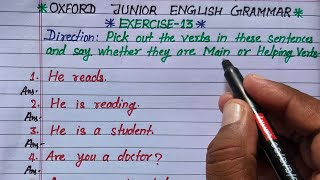 *OXFORD JUNIOR ENGLISH GRAMMAR*
*EXERCISE-13*
Direction: Pick out the verbs in these sentences
and say whether they are Main or Helping Verbs.
1. He reads.
Ans-
2. He is reading.
Ans-
3. He is a student.
Ans-
4. Are you a doctor?
Ans-